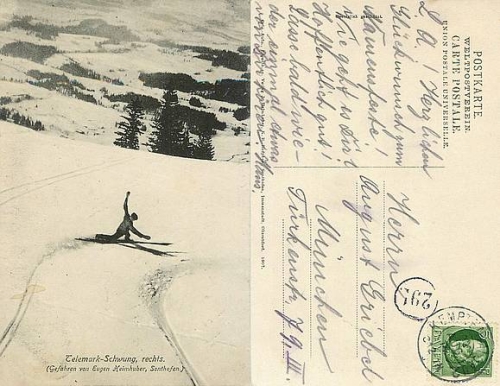 Telemark-Schwung, rechts.
(Gefahren von Eugen Heimhuber, Sonthofen.)
POSTKARTE.
WELTPOSTVEREIN.
CARTE POSTALE.
UNION POSTALE UNIVERSELLE.
L. A! Herzlichen
Glückwunsch zum
Namensfeste!
Wie geht es dir?
Hoffentlich gut!
Lasse bald wie-
der einmal etwas
Herrn
August Griebel
München
Türkenstr. 79. III
295
KEMPT
BAYERN